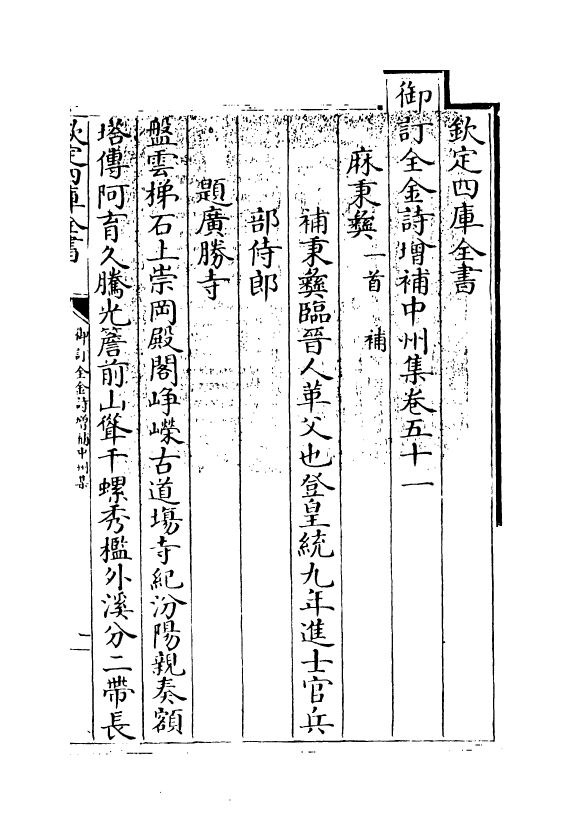 欽定四庫全書
御訂全金詩增補中州集卷五十一
麻秉彝一首　補
補秉彝臨晉人革父也登皇統九年進士官兵
部侍郎
題廣勝寺
盤雲梯石上崇岡殿閣崢嶸古道塲寺紀汾陽親奏額
塔傳阿育久騰光簷前山聳千螺秀檻外溪分二帶長
欽定四庫全書
御訂全金詩增補中州集